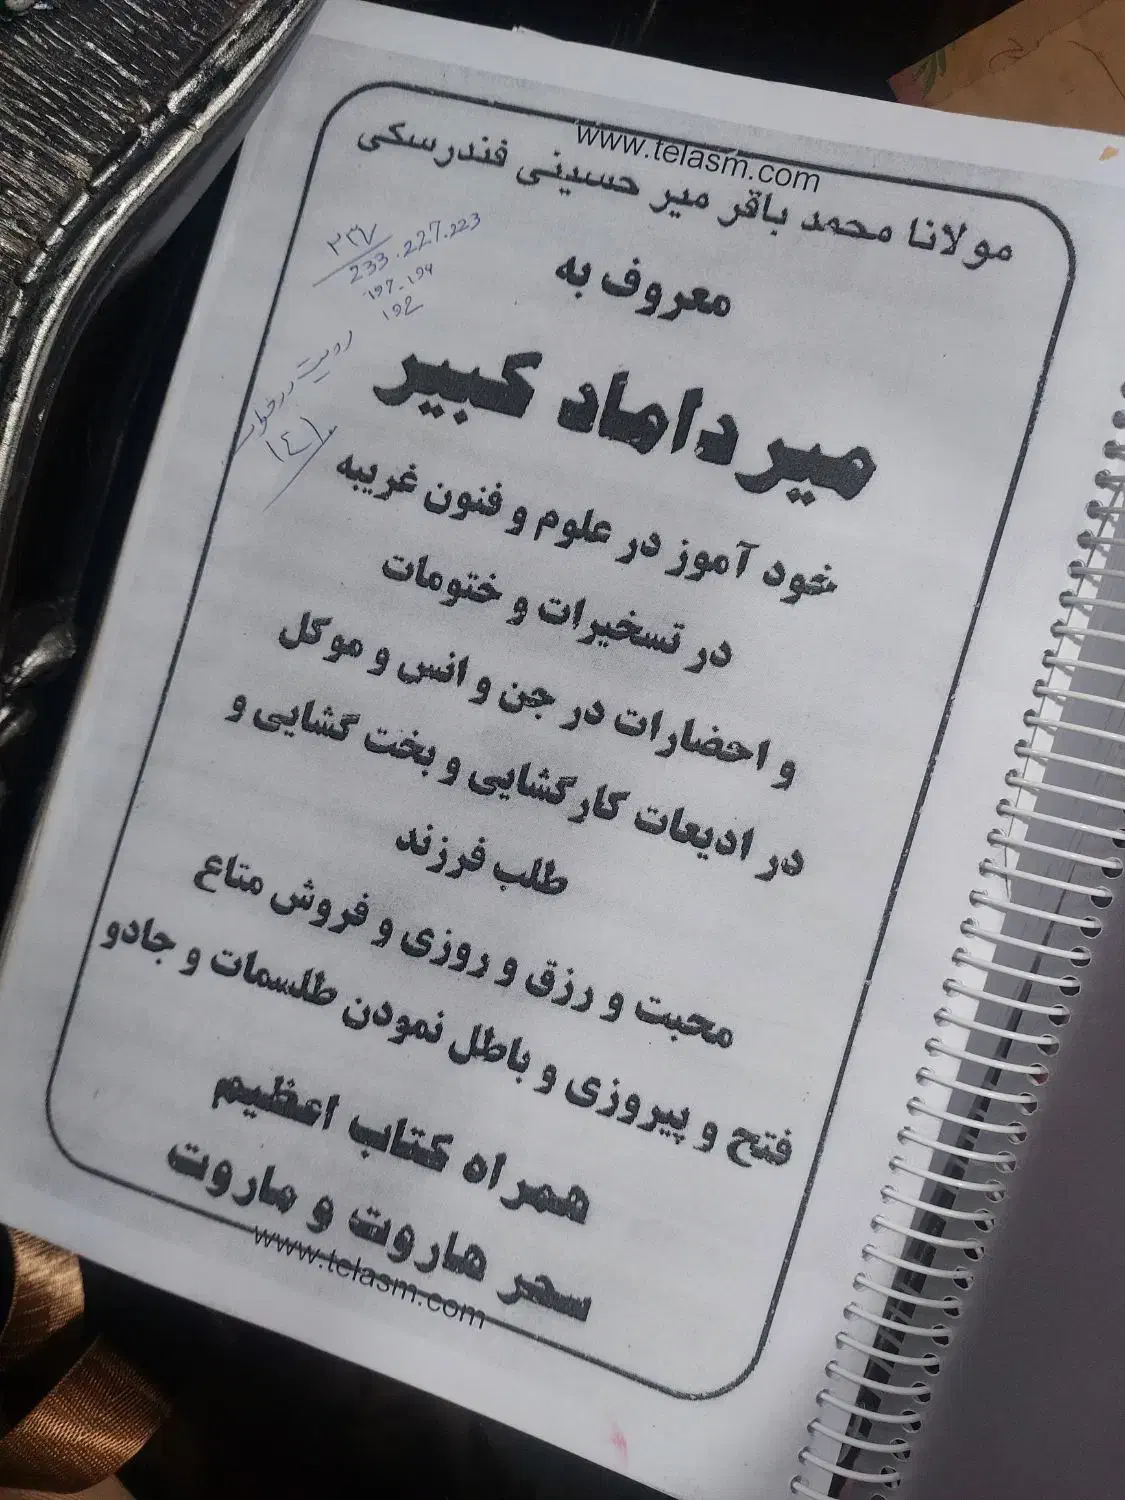 www.telasm.com
مولانا محمد باقر میر حسینی فندرسکی
معروف به
میرداماد کبیر
خود آموز در علوم و فنون غریبه
در تسخیرات و ختومات
و احضارات در جن و انس و موکل
در ادیعات کارگشایی و بخت گشایی و
طلب فرزند
محبت و رزق و روزی و فروش متاع
فتح و پیروزی و باطل نمودن طلسمات و جادو
همراه کتاب اعظیم
سحر هاروت و ماروت
www.telasm.com
233.227.223
197.194
192
رویت در خواب